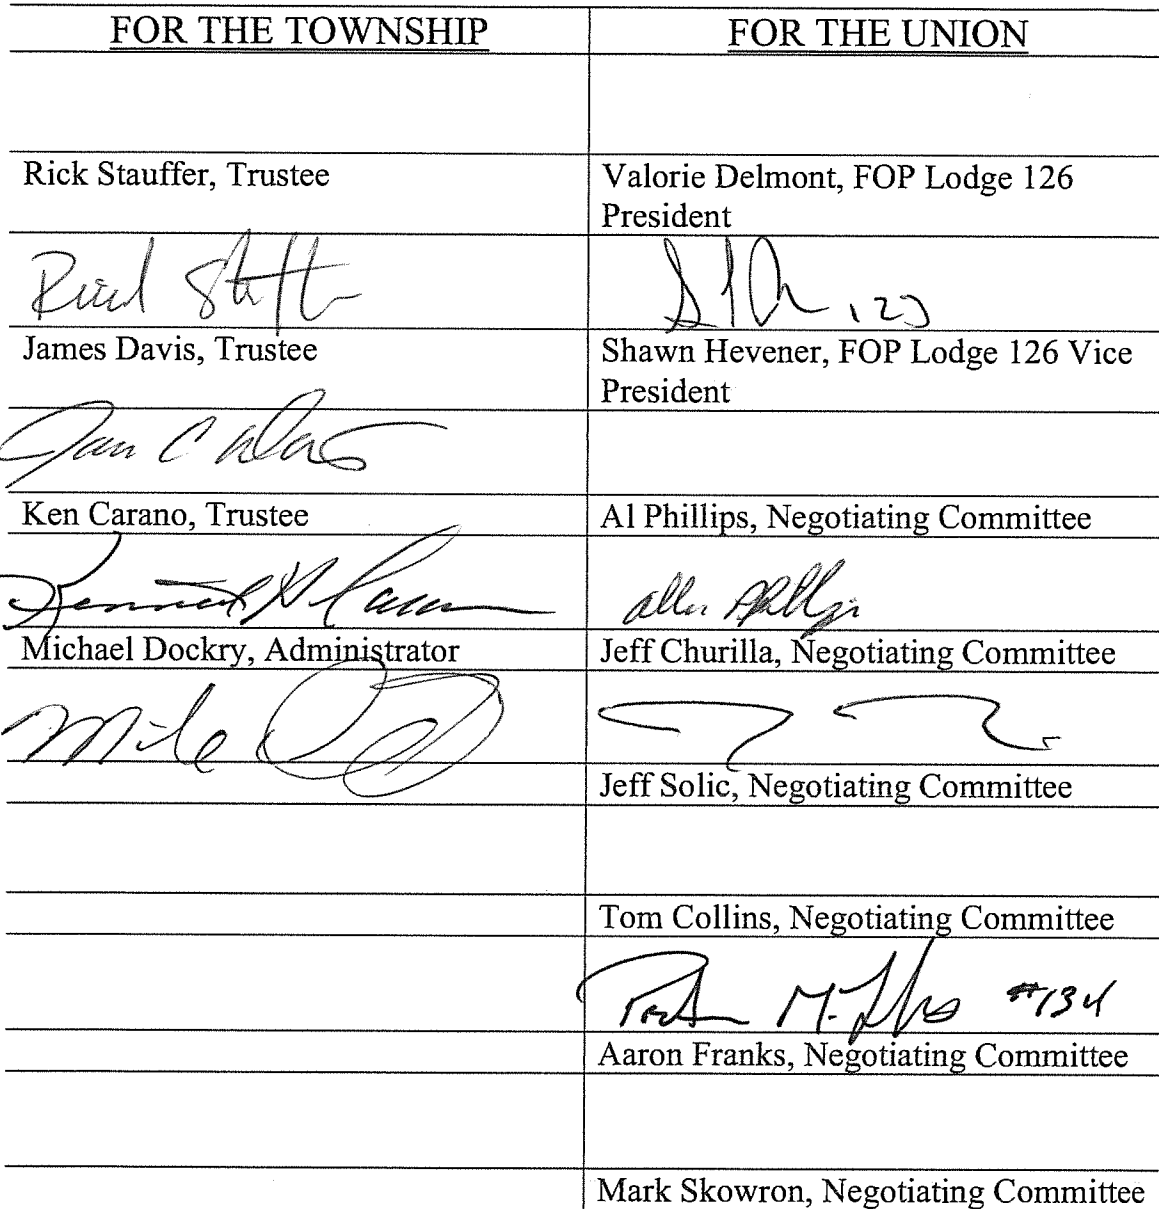 FOR THE TOWNSHIP
FOR THE UNION
Rick Stauffer, Trustee
Valorie Delmont, FOP Lodge 126
President
123
James Davis, Trustee
Shawn Hevener, FOP Lodge 126 Vice
President
Ken Carano, Trustee
Al Phillips, Negotiating Committee
Michael Dockry, Administrator
Jeff Churilla, Negotiating Committee
Mike
Jeff Solic, Negotiating Committee
Tom Collins, Negotiating Committee
#134
Aaron Franks, Negotiating Committee
Mark Skowron, Negotiating Committee